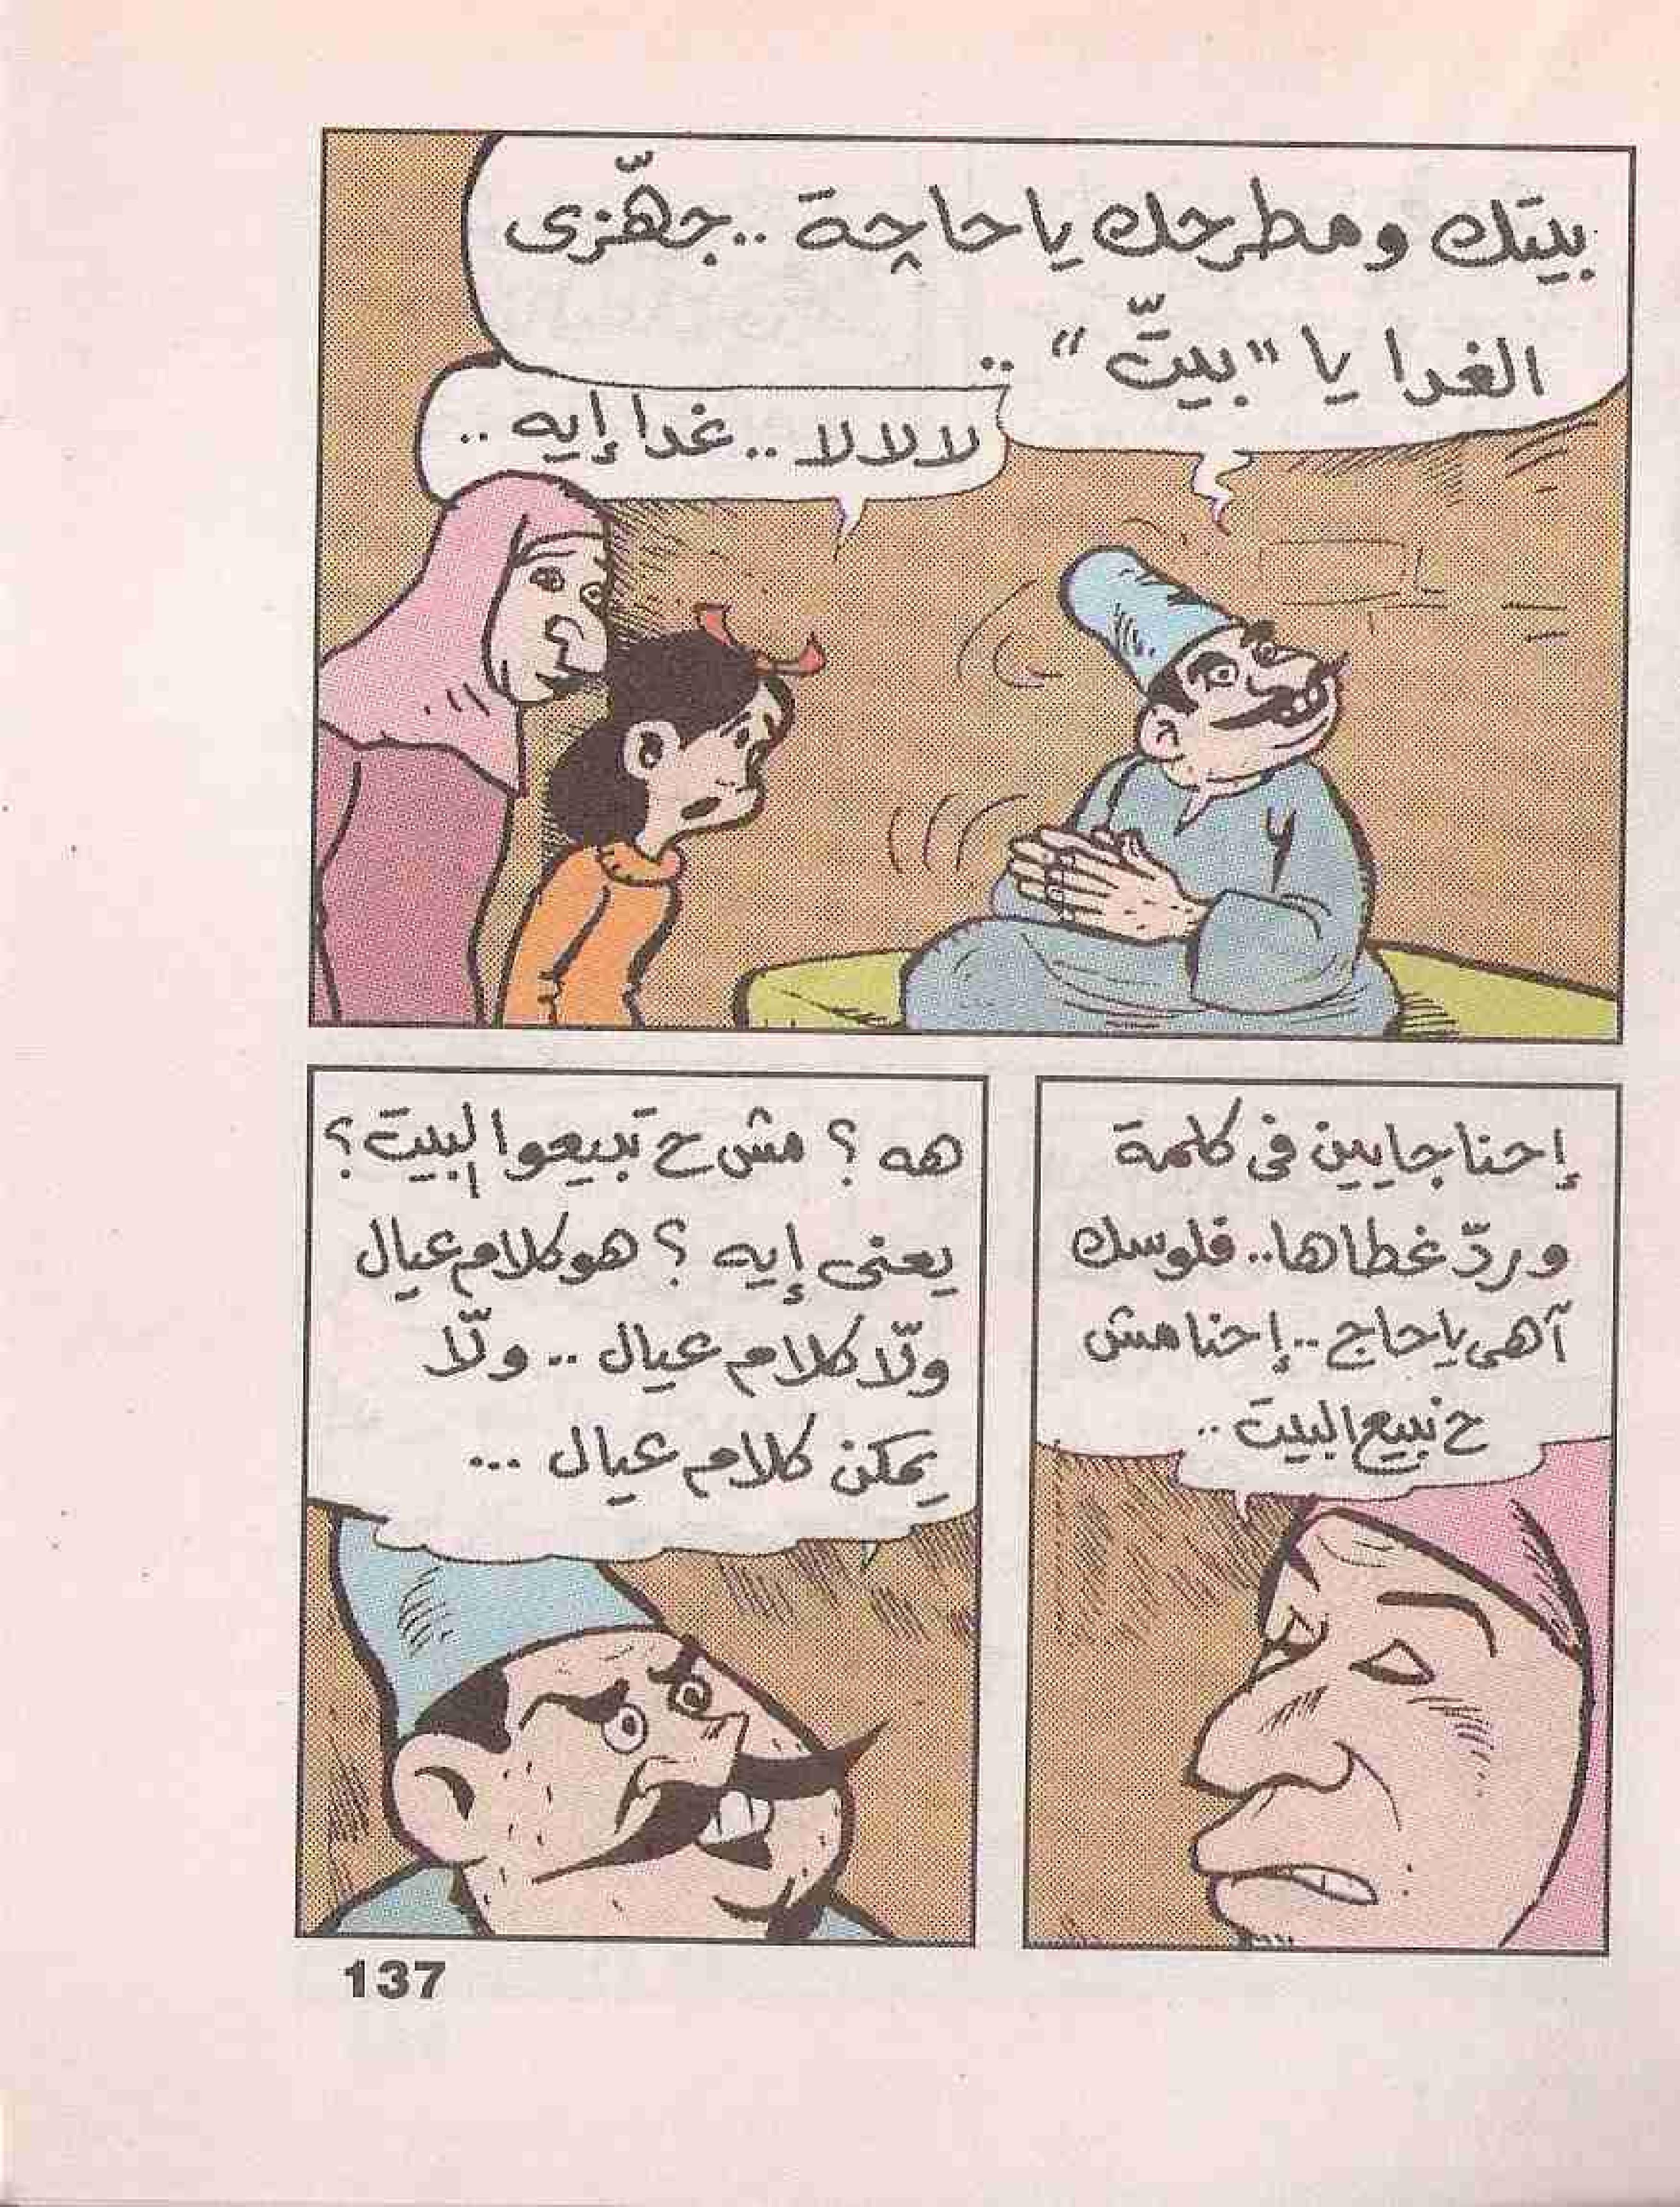 بيتك ومطرحك يا حاچة .. جهّزى
الغدا يا "بيتّ" ..
لا لا لا .. غدا إيه ..
إحنا جايين فى كلمة
وردّ غطاها .. فلوسك
آهى يا حاج .. إحنا مش
ح نبيع البيت ..
هه ؟ مش ح تبيعوا البيت ؟
يعنى إيه ؟ هو كلام عيال
ولّا كلام عيال .. ولّا
يمكن كلام عيال ...
137